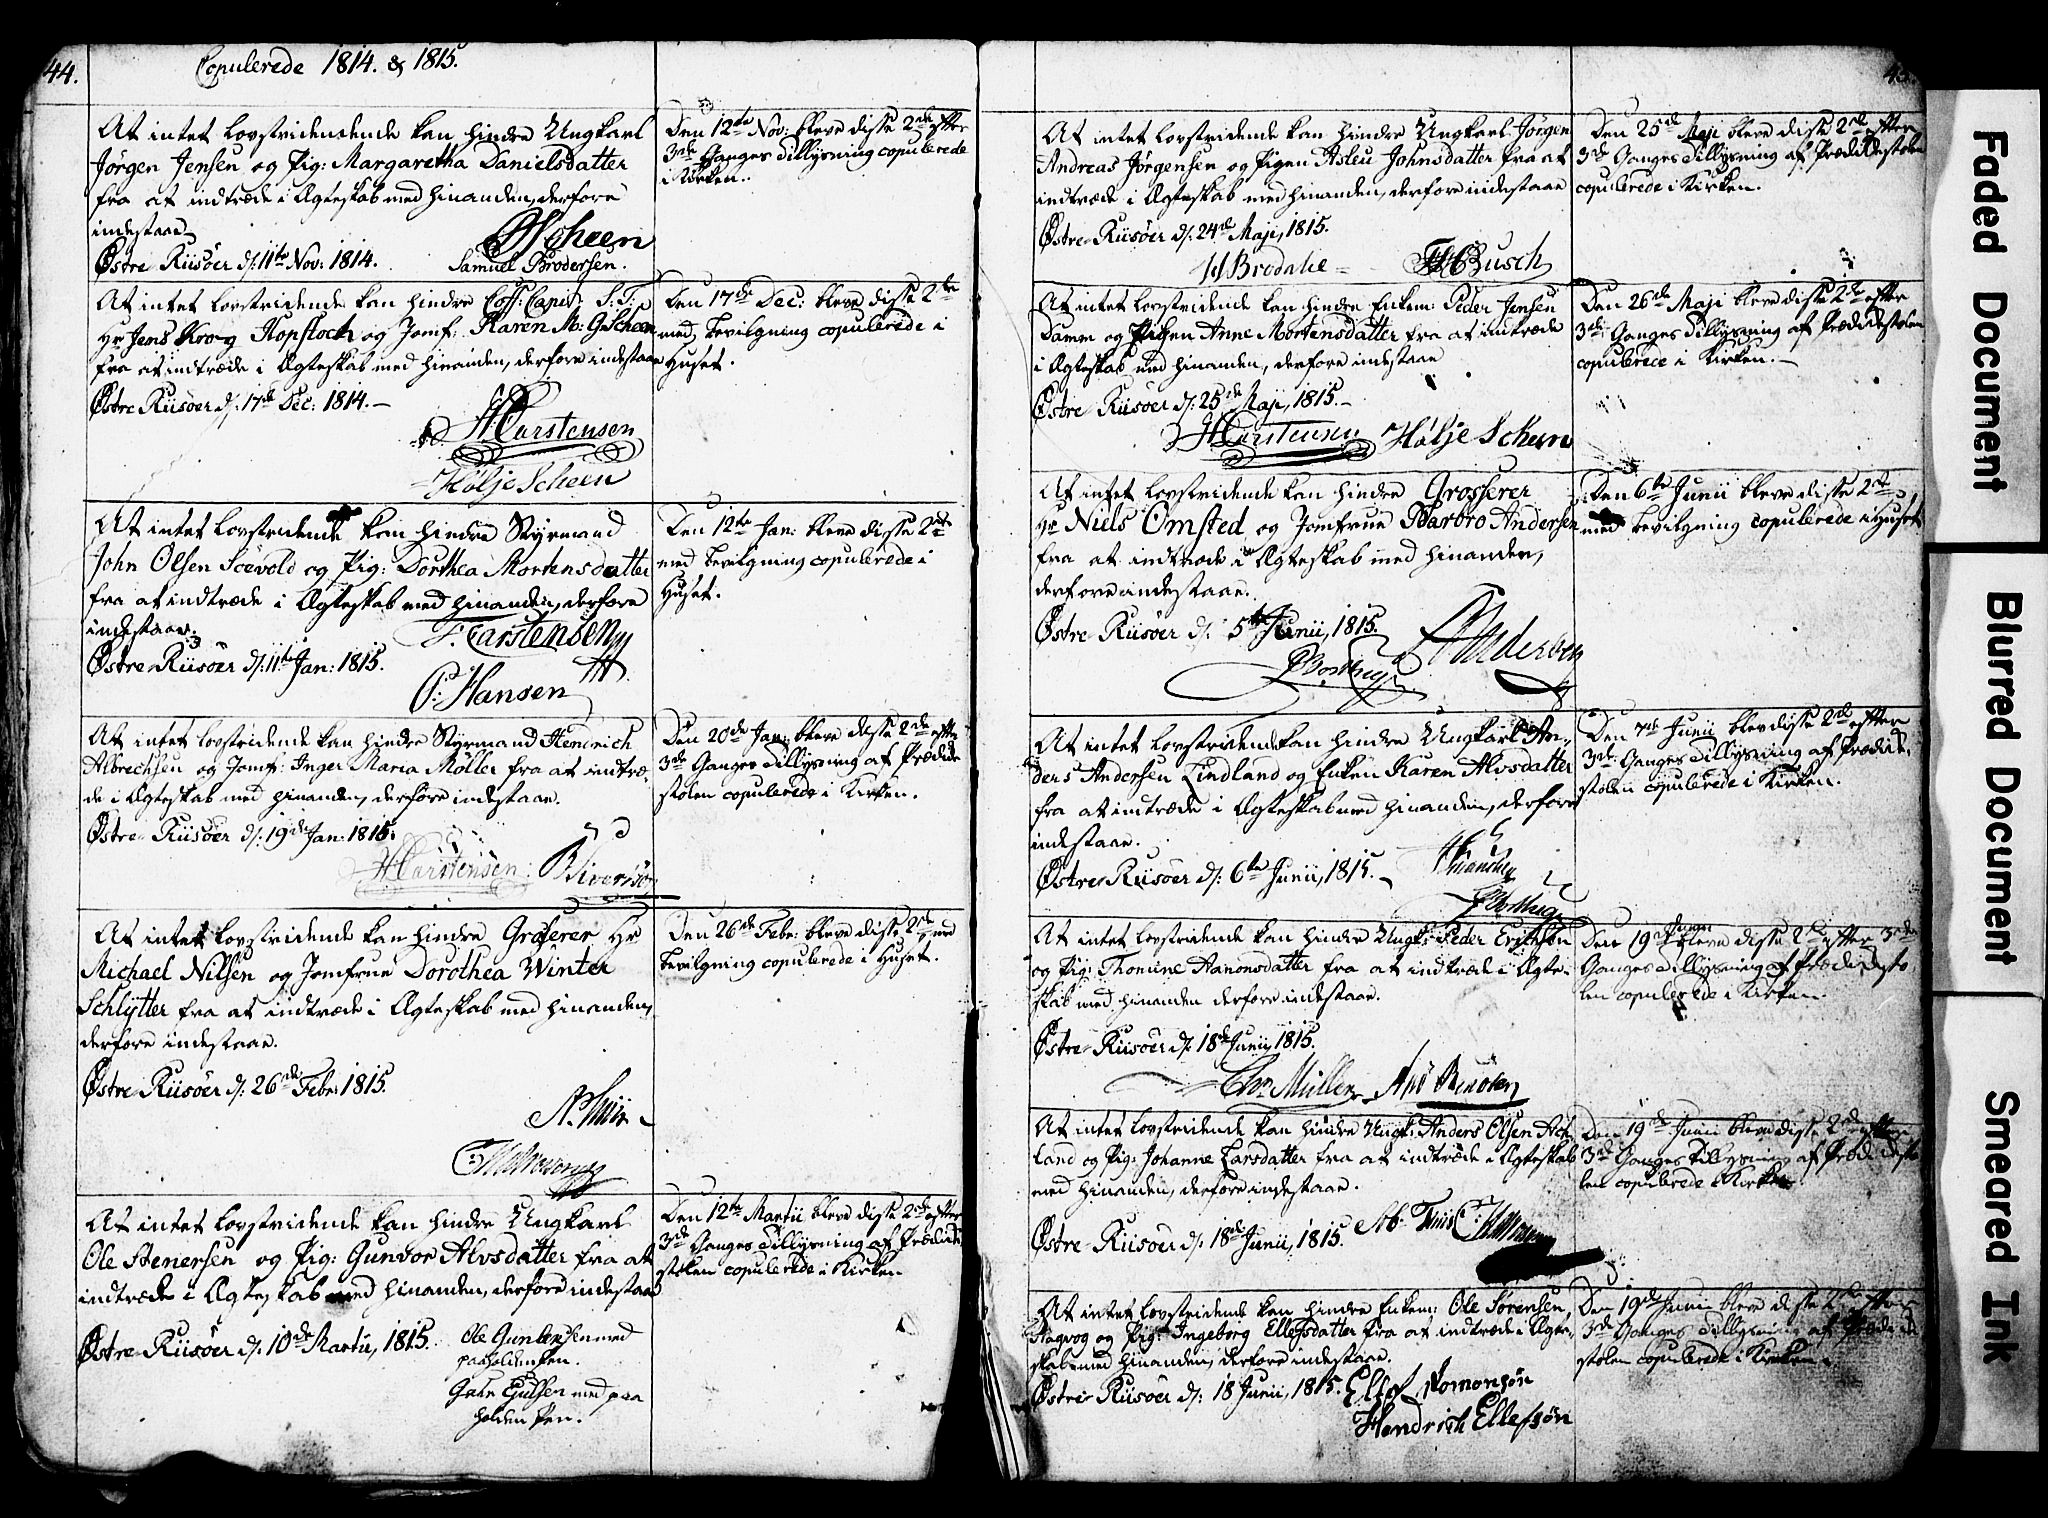 44.
Copulerede 1814. & 1815.
At intet lovstridendende kan hindre Ungkarl
Jørgen Jensen og Pig: Margaretha Danielsdatter
fra at indtræde i Ægteskab med hinanden, derfore
indestaae
Østre Riisøer d: 11te Nov: 1814.
Scheen
Samuel Brodersen.
Den 12te Nov: bleve disse 2de efter
3de Ganges Tillysning copulerede
i Kirken.
At intet lovstridende kan hindre Coff: Capit: S: T:
Hr Jens Krog Hopstock og Jomf: Karen M: G. Scheen
fra at indtræde i Ægteskab med hinanden, derfore indestaae
Østre Riisøer d: 17de Dec: 1814.
H Carstensen
Hølje Scheen
Den 17de Dec: bleve disse 2de
med Bevilgning copulerede i
Huset.
At intet lovstridende kan hindre Styrmand
John Olsen Scevold og Pig: Dorthea Mortensdatter
fra at indtræde i Ægteskab med hinanden, derfore
indestaae:
Østre Riisøer d: 11te Jan: 1815.
F. Carstensen
P: Hansen
Den 12te Jan: bleve disse 2de
med Bevilgning copulerede i
Huset.
At intet lovstridende kan hindre Styrmand Hendrich
Albrechsen og Jomf: Inger Maria Møller fra at indtræ-
de i Ægteskab med hinanden, derføre indestaae.
Østre Riisøer d: 19de Jan: 1815.
H Carstensen
Den 20de Jan: bleve disse 2de efter
3de Ganges Tillysning af Prædike
stolen copulerede i Kirken.
At intet lovstridende kan hindre Grosserer Hr
Michael Nilsen og Jomfrue Dorothea Winter
Schlytter fra at indtræde i Ægteskab med hinanden,
derføre indestaae.
Østre Riisøer d: 26de Febr: 1815.
Den 26de Febr: bleve disse 2de med
Bevilgning copulerede i Huset.
At intet lovstridende kan hindre Ungkarl
Ole Stenersen og Pig: Gunvor Alvsdatter fra at
indtræde i Ægteskab med hinanden, derføre indestaae
Østre Riisøer d: 10de Martii, 1815.
Ole Gunbersen med
paaholden Pen.
med paa
holden Pen.
Den 12te Martii bleve disse 2de efter
3de Ganges Tillysning af Prædike
stolen copulerede i Kirken
At intet lovstridende kan hindre Ungkarl Jørgen
Andreas Jørgensen og Pigen Asleu Johnsdatter fra at
indtræde i Ægteskab med hinanden, derføre indestaae
Østre Riisøer d: 24de Maji, 1815.
Brodahe
Busch
Den 25de Maji bleve disse 2de efter
3de Ganges Tillysning af Prædikestolen
copulerede i Kirken.
At intet lovstridende kan hindre Enkem: Peder Jensen
Damm og Pigen Anne Mortensdatter fra at indtræde
i Ægteskab med hinanden, derføre indestaae
Østre Riisøer d: 25de Maji, 1815.
H Carstensen Hølje Scheen
Den 26de Maji bleve disse 2de efter
3de Ganges Tillysning af Prædikestolen
copulerede i Kirken.
At intet lovstridende kan hindre Grosserer
Hr Niels Omsted og Jomfrue Barbro Andersen
fra at indtræde i Ægteskab med hinanden,
derfore indestaae.
Østre Riisøer d: 5te Junii, 1815.
Andersen
Den 6te Junii bleve disse 2de
med Bevilgning copulerede i Huset
At intet lovstridende kan hindre Ungkarl An-
ders Andersen Lindland og Enken Karen Alvsdatter
fra at indtræde i Ægteskab med hinanden, derføre
indestaae.
Østre Riisøer d: 6te Junii, 1815.
Den 7de Junii blev disse 2de efter
3de Ganges Tillysning af Prædike
stolen copulerede i Kirken.
At intet lovstridende kan hindre Ungk: Peder Eriksen
og Pig: Thomine Aanonsdatter fra at indtræde i Ægte-
skab med hinanden derføre indestaae.
Østre Riisøer d: 18de Junii 1815.
Chr Müller
Den 19de Junii bleve disse 2de efter 3de
Ganges Tillysning af Prædikesto
len copulerede i Kirken.
At intet lovstridende kan hindre Ungk: Anders Olsen Ach-
land og Pig: Johanne Larsdatter fra at indtræde i Ægteskab
med hinanden, derføre indestaae.
Østre Riisøer d: 18de Junii, 1815.
Den 19de Junii bleve disse 2de efter
3de Ganges Tillysning af Prædikesto
len copulerede i Kirken
At intet lovstridende kan hindre Enkem: Ole Sørensen
Hagvog og Pig: Ingeborg Ellefsdatter fra at indtræde i Ægte-
skab med hinanden, derføre indestaae.
Østre Riisøer d: 18 Junii, 1815.
Ellef Romonsøn
Hendrich Ellefsøn
Den 19de Junii bleve disse 2de efter
3de Ganges Tillysning af Prædike
stolen copulerede i Kirken.
Faded Document
Blurred Document
Smeared Ink